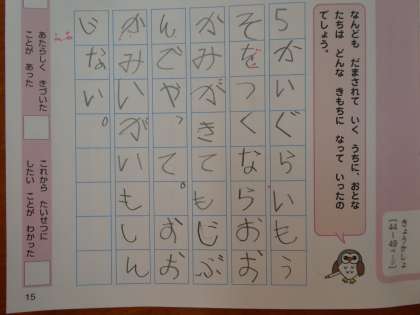 きょうかしょ
[44〜49ページ]
なんども だまされて いく うちに、おとな
たちは どんな きもちに なって いったの
でしょう。
5かいぐらいもう
そをつくならおお
かみがきてもじぶ
んでやって。おお
かみいがいもしん
じない。
あたらしく きづいた
ことが あった
これから たいせつに
したい ことが わかった
15